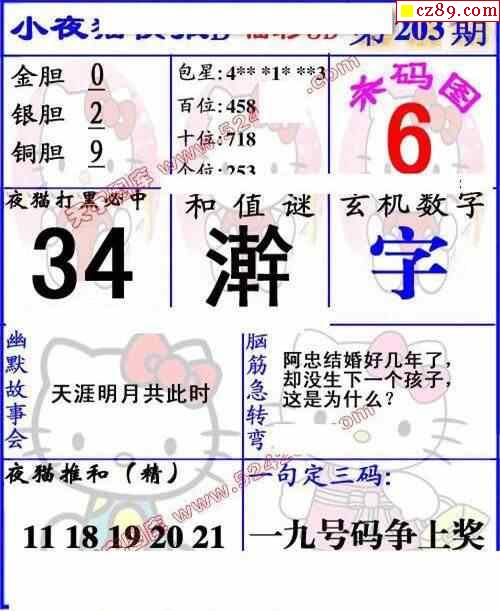 cz89.com
小夜猫
第203期
金胆 0
银胆 2
铜胆 9
包星:4** *1* **3
百位:458
十位:718
个位:253
来码图
6
夜猫打黑必中
34
和值谜
澣
玄机数字
字
幽默故事会
天涯明月共此时
脑筋急转弯
阿忠结婚好几年了,
却没生下一个孩子,
这是为什么?
夜猫推和(精)
11 18 19 20 21
一句定三码:
一九号码争上奖